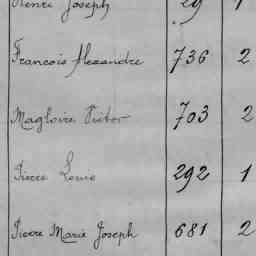 Henri Joseph 29 1
Francois Alexandre 736 2
Magloire Victor 703 2
Pierre Louis 292 1
Pierre Marie Joseph 681 2